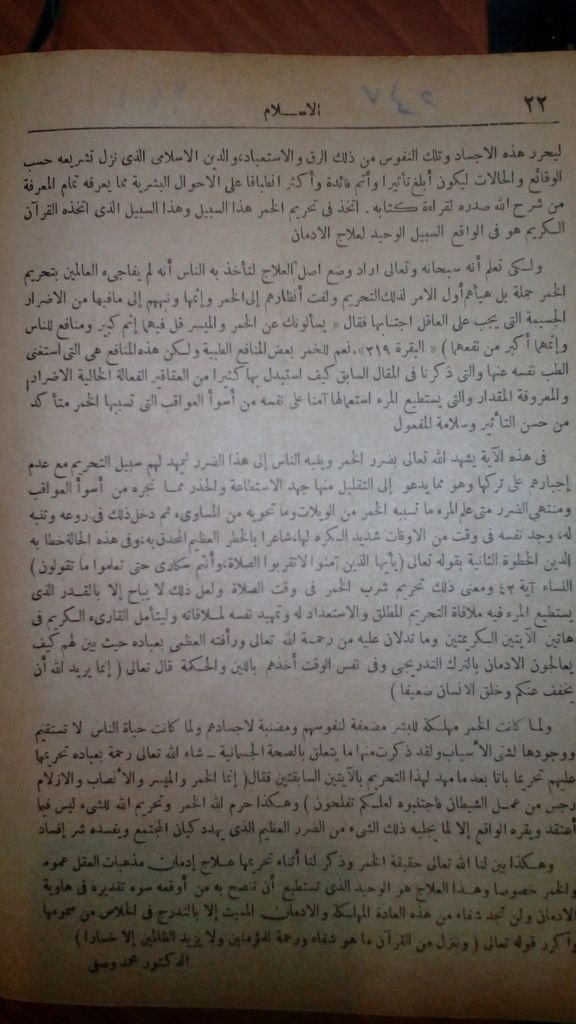 ٢٢
الاسـلام
ليحرر هذه الاجساد وتلك النفوس من ذلك الرق والاستعباد، والدين الاسلامى الذى نزل تشريعه حسب
الوقائع والحالات ليكون أبلغ تأثيرا وأتم فائدة وأكثر انطباقا على الاحوال البشرية مما يعرفه تمام المعرفة
من شرح الله صدره لقراءة كتابه . اتخذ فى تحريم الخمر هذا السبيل وهذا السبيل الذى اتخذه القرآن
الكريم هو فى الواقع السبيل الوحيد لعلاج الادمان
ولكى تعلم أنه سبحانه وتعالى اراد وضع اصل العلاج لتأخذ به الناس أنه لم يفاجىء العالمين بتحريم
الخمر جملة بل هيأهم أول الامر لذلك التحريم ولفت أنظارهم إلى الخمر وإثمها ونبههم إلى مافيها من الاضرار
الجسيمة التى يجب على العاقل اجتنابها فقال « يسألونك عن الخمر والميسر قل فيهما إثم كبير ومنافع للناس
وإثمهما أكبر من نفعهما ) « البقرة ٢١٩ » . نعم للخمر بعض المنافع الطبية ولكن هذه المنافع هى التى استغنى
الطب نفسه عنها والتى ذكرنا فى المقال السابق كيف استبدل بها كثيرا من العقاقير الفعالة الخالية الاضرار
والمعروفة المقدار والتى يستطيع المرء استعمالها آمنا على نفسه من أسوأ العواقب التى تسببها الخمر متأكد
من حسن التأثير وسلامة المفعول
فى هذه الآية يشهد الله تعالى بضرر الخمر وينبه الناس إلى هذا الضرر ليمهد لهم سبيل التحريم مع عدم
إجبارهم على تركها وهو مما يدعو إلى التقليل منها جهد الاستطاعة والحذر مما تجره من أسوأ العواقب
ومنتهى الضرر متى علم المرء ما تسببه الخمر من الويلات وما تحويه من المساوىء ثم دخل ذلك فى روعه وتنبه
له، وجد نفسه فى وقت من الاوقات شديد الكره لها، شاعرا بالخطر العظيم المحدق به، وفى هذه الحالة خطا به
الدين الخطوة الثانية بقوله تعالى ( يأيها الذين آمنوا لاتقربوا الصلاة وأنتم سكارى حتى تعلموا ما تقولون )
النساء آية ٤٢ ومعنى ذلك تحريم شرب الخمر فى وقت الصلاة ولعل ذلك لا يباح إلا بالقدر الذى
يستطيع المرء فيه ملاقاة التحريم المطلق والاستعداد له وتمهيد نفسه لملاقاته وليتأمل القارىء الكريم فى
هاتين الآيتين الكريمتين وما تدلان عليه من رحمة الله تعالى ورأفته العظمى بعباده حيث بين لهم كيف
يعالجون الادمان بالترك التدريجى وفى نفس الوقت أخذهم باللين والحكمة قال تعالى ( إنما يريد الله أن
يخفف عنكم وخلق الانسان ضعيفا )
ولما كانت الخمر مهلكة للبشر مضعفة لنفوسهم ومضنية لاجسادهم ولما كانت حياة الناس لا تستقيم
ووجودها لشتى الأسباب ولقد ذكرت منها ما يتعلق بالصحة الجسمانية ـ شاء الله تعالى رحمة بعباده تحريمها
عليهم تحريما باتا بعد ما مهد لهذا التحريم بالآيتين السابقتين فقال ( إنما الخمر والميسر والأنصاب والازلام
رجس من عمل الشيطان فاجتنبوه لعلكم تفلحون ) وهكذا حرم الله الخمر وتحريم الله للشىء ليس فيما
أعتقد ويقره الواقع إلا لما يجلبه ذلك الشىء من الضرر العظيم الذى يهدد كيان المجتمع ويفسده شر إفساد
وهكذا بين لنا الله تعالى حقيقة الخمر وذكر لنا أثناء تحريمها علاج إدمان مذهبات العقل عموما
والخمر خصوصا وهذا العلاج هو الوحيد الذى تستطيع أن تنصح به من أوقعه سوء تقديره فى هاوية
الادمان ولن تجد شفاء من هذه العادة المهلكة والادمان المميت إلا بالتدرج فى الخلاص من سمومها
وأكرر قوله تعالى ( وننزل من القرآن ما هو شفاء ورحمة للمؤمنين ولا يزيد الظالمين إلا خسارا )
الدكتور محمد وصفى